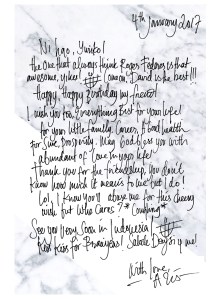 4th January 2017
Ni hao, Yuniko!
The one that always think Roger Federer is that
awesome, yikes! C'monn, David is the best!!!
Happy Happy Birthday my friend!
I wish you for everything Best for your life!
for your little family, Careers, & bad health
for Sure, Prosperity. May God bless you with
abundant of love in your life!
Thank you for the friendship, You don't
know how much it means to me but I do!
Lol, I know you'll abuse me for this cheesy
wish but Who Cares? * Coughing *
See you very soon in Indonesia
Kiss kiss for Bramiyens!
With love,